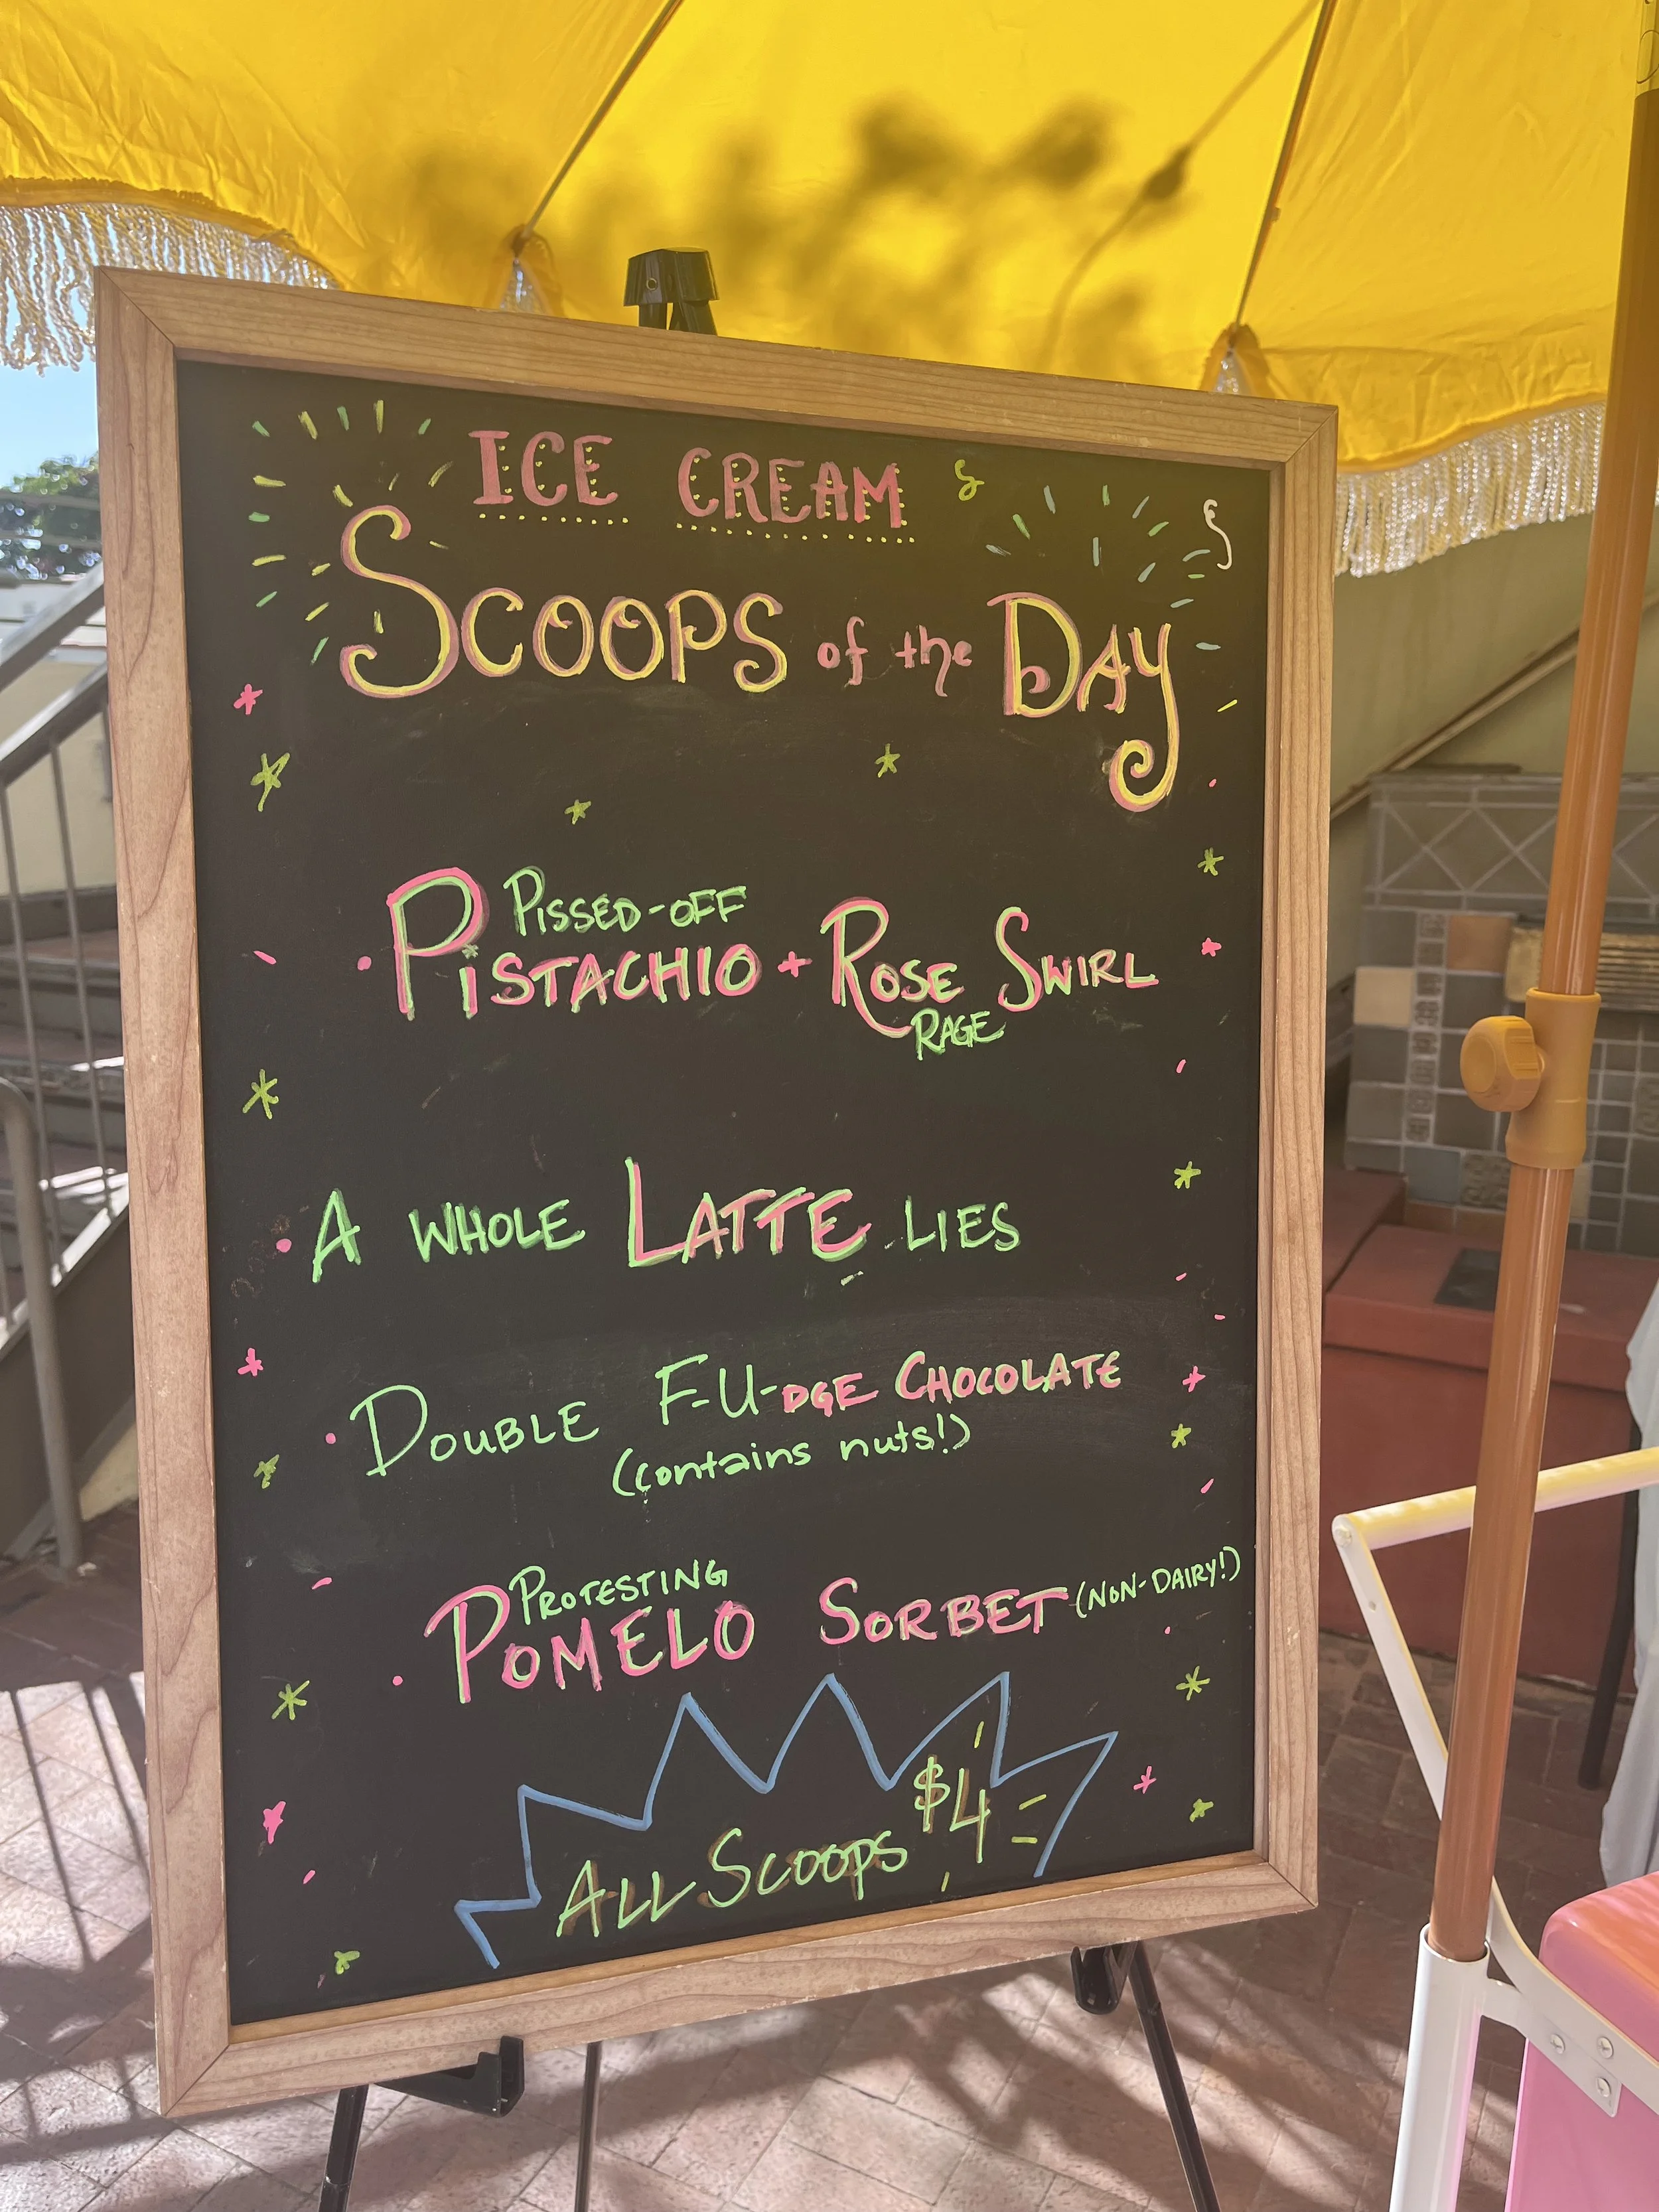 ICE CREAM
SCOOPS of the DAY
PISSED-OFF
• PISTACHIO + ROSE SWIRL
RAGE
• A WHOLE LATTE LIES
• DOUBLE F-U-DGE CHOCOLATE
(contains nuts!)
PROTESTING
• POMELO SORBET (NON-DAIRY!)
ALL SCOOPS $4